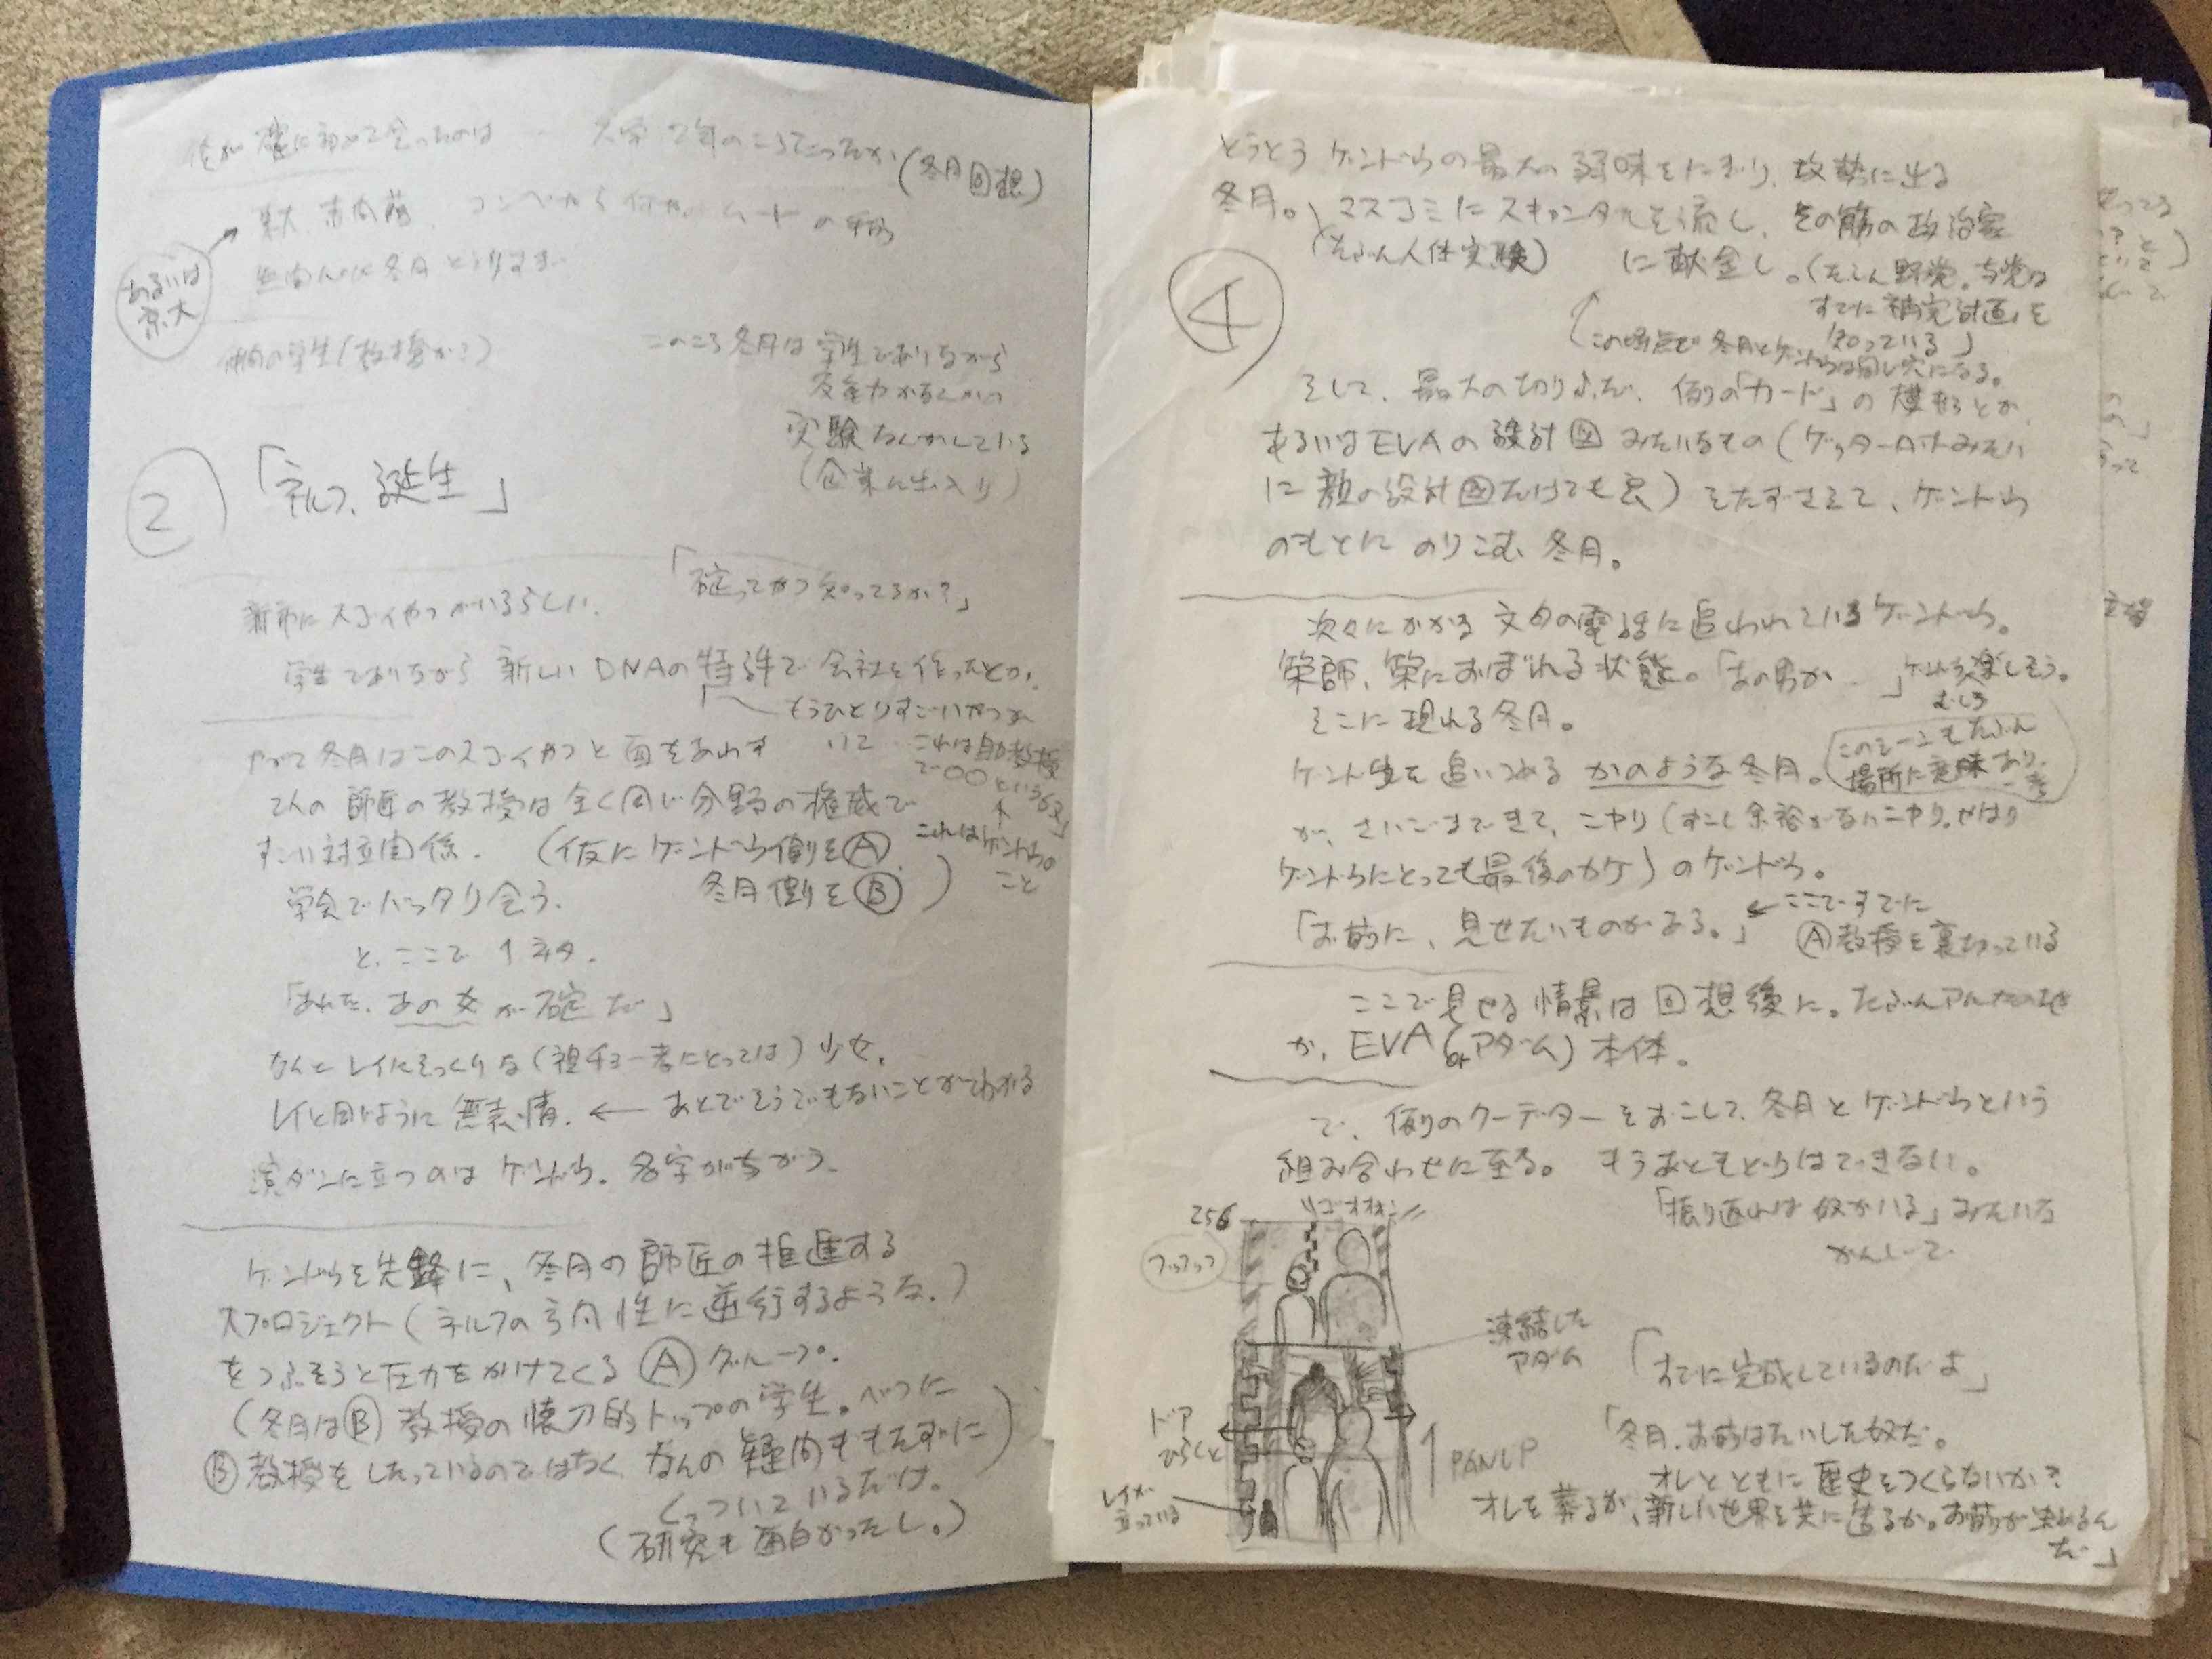 俺が碇に初めて会ったのは 大学2年のころだったか
(冬月回想)
東大 赤門前
あるいは
京大
冬月
このころ冬月は学生でありながら
実験なんかしている
(企業に出入り)
②
「ネルフ、誕生」
「碇ってやつ知ってるか?」
新市にスゴイやつがいるらしい。
学生でありながら 新しいDNAの特許で会社を作ったとか。
もうひとりすごいやつが
いて これは助教授
で〇〇という
これはゲンドウの
こと
やがて冬月はこのスゴイやつと面をあわす
2人の師匠の教授は全く同じ分野の権威で
すごい対立関係。 (仮にゲンドウ側をⒶ
冬月側をⒷ)
学会でバッタリ会う。
と、ここで1ネタ。
「あれだ、あの女が碇だ」
なんとレイにそっくりな(視チョー者にとっては)少女。
レイと同じように無表情。← あとでそうでもないことがわかる
演ダンに立つのはゲンドウ。名字がちがう。
ゲンドウを先鋒に、冬月の師匠の推進する
大プロジェクト(ネルフの方向性に逆行するような。)
をつぶそうと圧力をかけてくるⒶグループ。
(冬月はⒷ教授の懐刀的トップの学生。べつに
Ⓑ教授をしたっているのではなく なんの疑問ももたずに
くっついているだけ。)
(研究も面白かったし。)
とうとうゲンドウの最大の弱味をにぎり、攻勢に出る
冬月。マスコミにスキャンダルを流し、その筋の政治家
(たぶん人体実験) に献金し。(たぶん野党。与党は
すでに補完計画を
知っている)
(この時点で冬月とゲンドウは同じ穴になる。
④
そして、最大の切りふだ、例の「カード」の模型とか
あるいはEVAの設計図みたいなもの(ゲッターロボみたい
に顔の設計図だけでも良)をたずさえて、ゲンドウ
のもとに のりこむ冬月。
次々にかかる文句の電話に追われているゲンドウ。
策師、策におぼれる状態。「あの男が…」ゲンドウ楽しそう。
むしろ
そこに現れる冬月。
ゲンドウを追いつめるかのような冬月。
このシーンもたぶん
場所に意味あり。
が、さいごまできて、ニヤリ(すこし余裕がないニヤリ。やはり
ゲンドウにとっても最後のカケ)のゲンドウ。
「お前に、見せたいものがある。」← ここですでに
Ⓐ教授を裏切っている
ここで見せる情景は回想後に。たぶん
か、EVA(orアダム)本体。
で、例のクーデターをおこして、冬月とゲンドウという
組み合わせに至る。 もうあともどりはできない。
「振り返れば奴がいる」みたいな
かんじで
256
ゴオオオン
凍結した
アダム
ドア
ひらくと
レイが
立っている
↑PANUP
「すでに完成しているのだよ」
「冬月、お前はたいした奴だ。
オレとともに歴史をつくらないか?
オレを葬るか、新しい世界を共に造るか。お前が決めるん
だ」